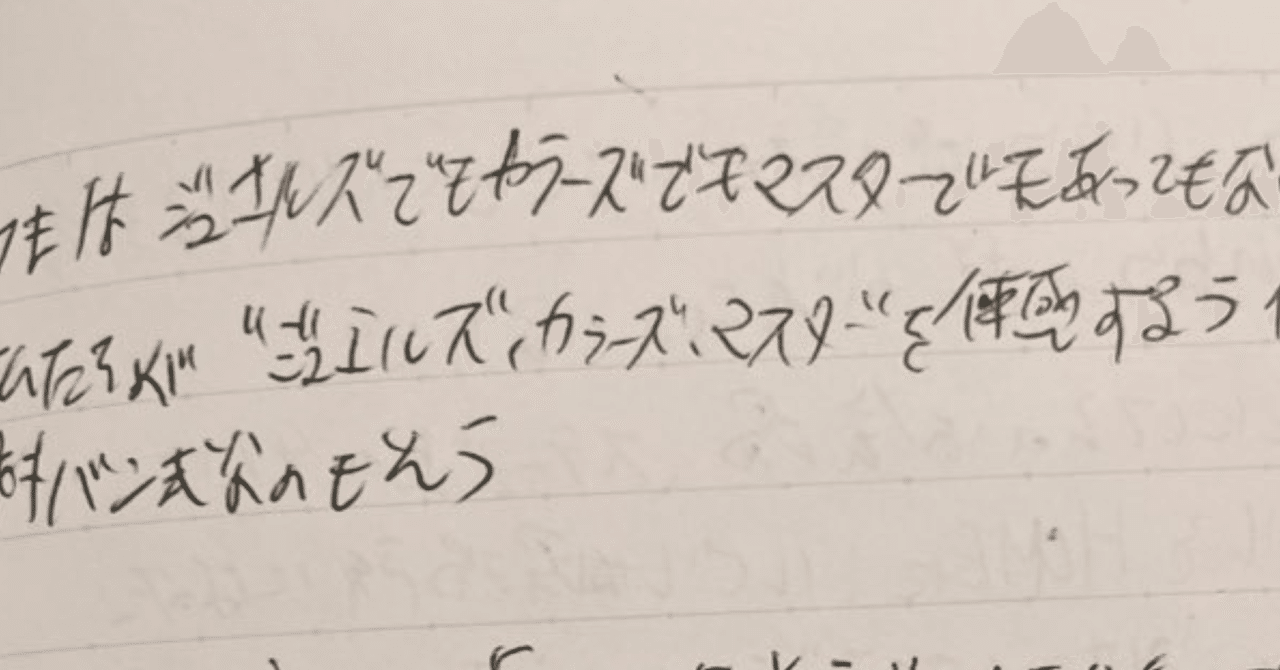 もは ジュエルズでもカラーズでもマスターでもあってもな
たちが "ジュエルズ、カラーズ、マスター"を体感するよう
バン式なのもそう